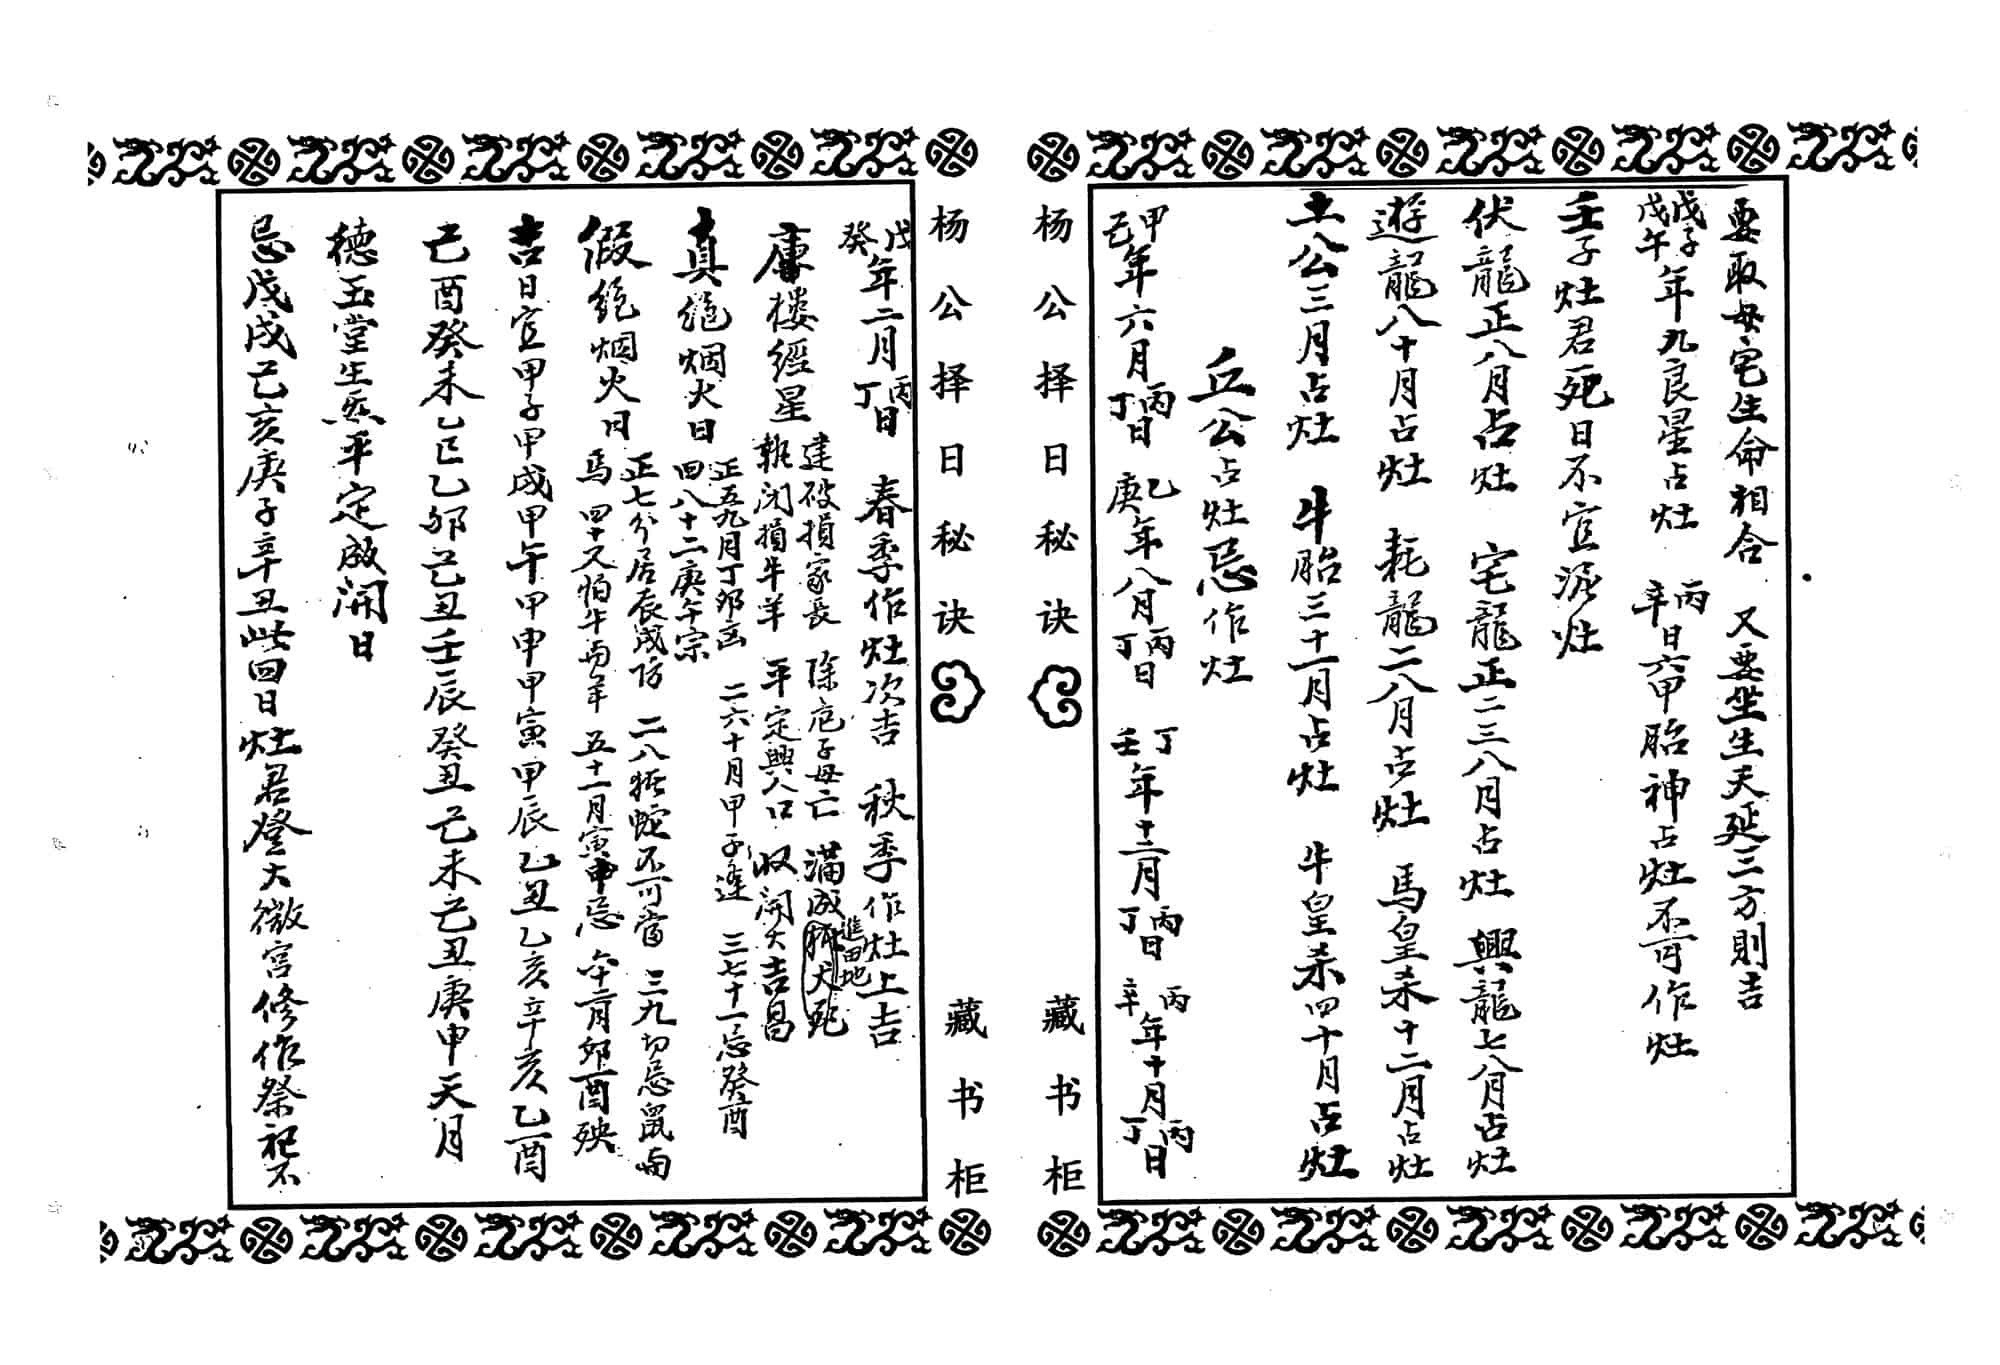 要取母宅生命相合 又要坐生天延三方則吉
戊子戊午年九良星占灶 丙辛日六甲胎神占灶不可作灶
壬子灶君死日不宜泥灶
伏龍正八月占灶 宅龍正二三八月占灶 興龍七八月占灶
遊龍八十月占灶 耗龍二八月占灶 馬皇杀十二月占灶
土公三月占灶 牛胎三十一月占灶 牛皇杀四十月占灶
丘公占灶忌作灶
甲己年六月丙丁日 乙庚年八月丙丁日 丁壬年十二月丙丁日 丙辛年十月丙丁日
杨公择日秘诀 藏书柜
杨公择日秘诀 藏书柜
戊癸年二月丙丁日 春季作灶次吉 秋季作灶上吉
庫楼經星 建破損家長 除危子母亡 滿成進田地犬死
執閉損牛羊 平定興人口 収開大吉昌
真絕烟火日 正五九月丁卯 二六十月甲子逢 三七十一忌癸酉
四八十二庚午宗
假絕烟火日 正七分居辰戌防 二八猪蛇不可當 三九切忌鼠与
馬 四十又怕牛与羊 五十一月寅申忌 六十二月卯酉殃
吉日宜甲子甲戌甲午甲申甲寅甲辰乙丑乙亥辛亥乙酉
己酉癸未乙巳乙卯己丑壬辰癸丑己未己丑庚申天月
德玉堂生炁平定成開日
忌戊戌己亥庚子辛丑此四日灶君登大微宮修作祭祀不